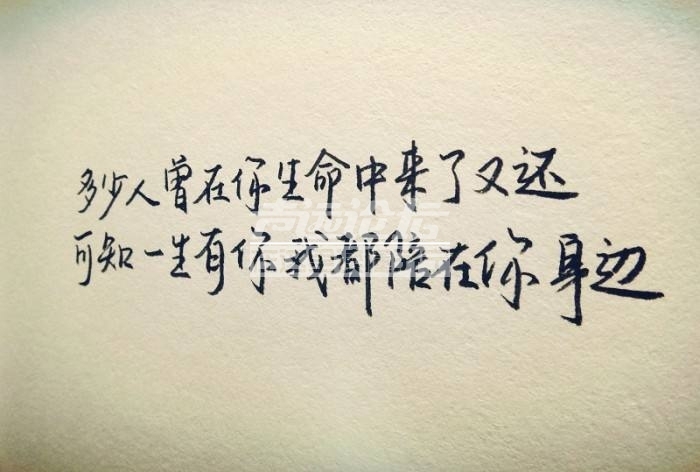 多少人曾在你生命中来了又还
可知一生有你我都陪在你身边